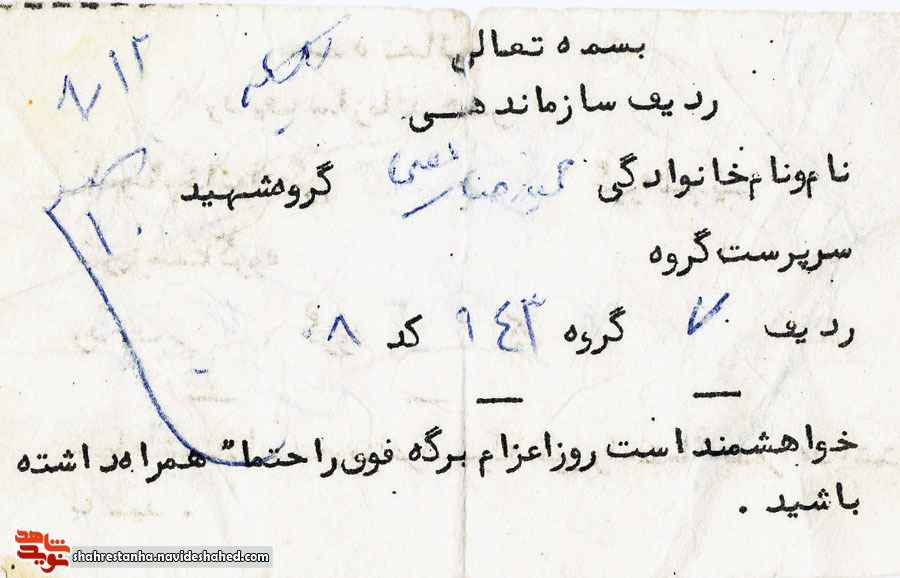 بسمه تعالی
ردیف سازماندهی
۸/۱۲
نام ونام خانوادگی حمیدرضا گروه شهید
۱۰
سرپرست گروه
ردیف ۷ گروه ۹۴۳ کد ۰۸
خواهشمند است روز اعزام برگه فوق را حتماً همراه داشته
باشید .
نوید شاهد
shahrestanha.navideshahed.com